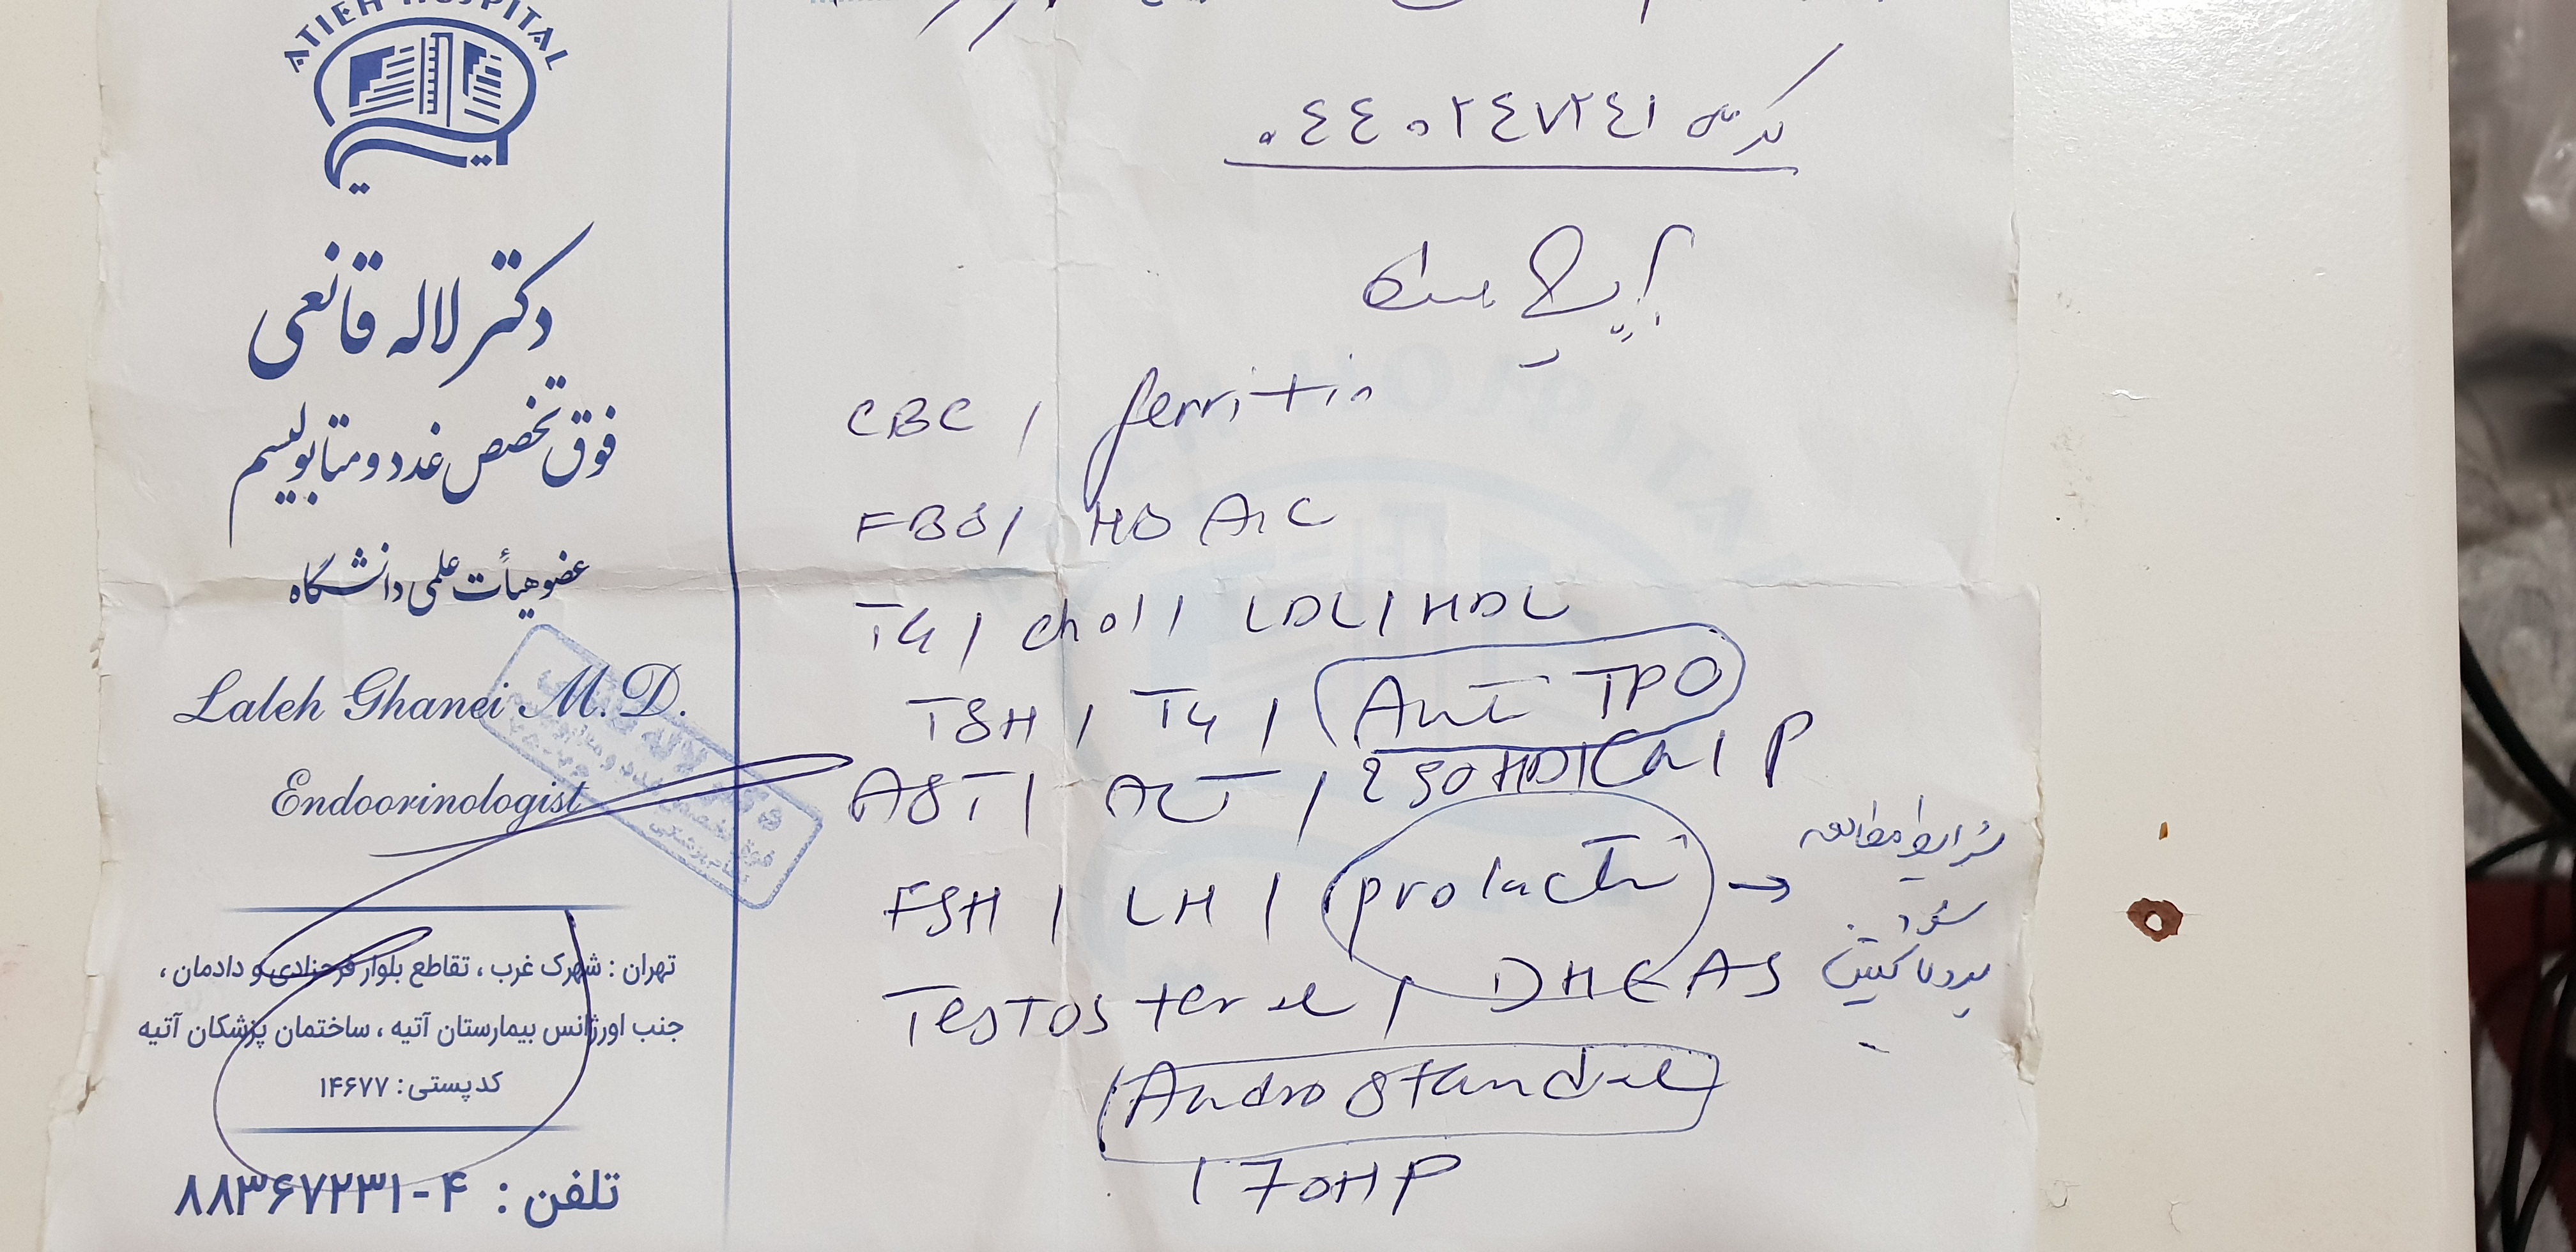 ATIEH HOSPITAL
آتیه
دکتر لاله قانعی
فوق تخصص غدد و متابولیسم
عضو هیأت علمی دانشگاه
Laleh Ghanei M.D.
Endoorinologist
تهران : شهرک غرب ، تقاطع بلوار فرحزادی و دادمان ،
جنب اورژانس بیمارستان آتیه ، ساختمان پزشکان آتیه
کدپستی : ۱۴۶۷۷
تلفن : ۴-۸۸۳۶۷۲۳۱
آزمایش
CBC / ferritin
FBS / HbA1c
TG / chol / LDL / HDL
TSH / T4 / Anti TPO
AST / ALT / 25OHD / Ca / P
FSH / LH / (prolactin) →
شرایط
پرولاکتین
Testosterone / DHEAS
(Androstandie)
17OHP